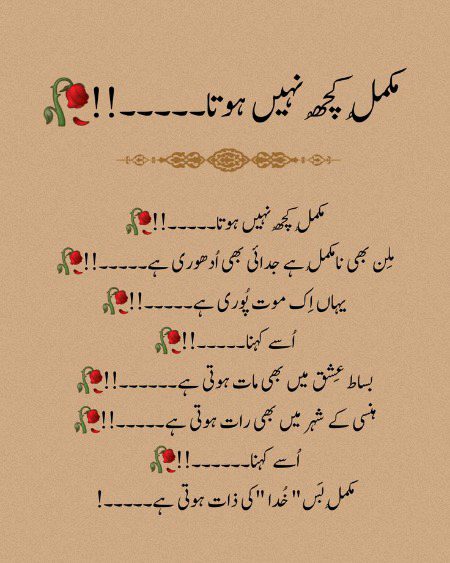 مکمل کچھ نہیں ہوتا۔۔۔۔۔۔!!🥀
مکمل کچھ نہیں ہوتا۔۔۔۔۔۔!!🥀
مِلن بھی نامکمل ہے جدائی بھی اُدھوری ہے۔۔۔۔۔!!🥀
یہاں اِک موت پُوری ہے۔۔۔۔۔۔!!🥀
اُسے کہنا۔۔۔۔۔۔!!🥀
بساط عِشق میں بھی مات ہوتی ہے۔۔۔۔۔۔۔!!🥀
ہنسی کے شہر میں بھی رات ہوتی ہے۔۔۔۔۔۔!!🥀
اُسے کہنا۔۔۔۔۔۔۔!!🥀
مکمل بَس "خُدا" کی ذات ہوتی ہے۔۔۔۔۔۔!